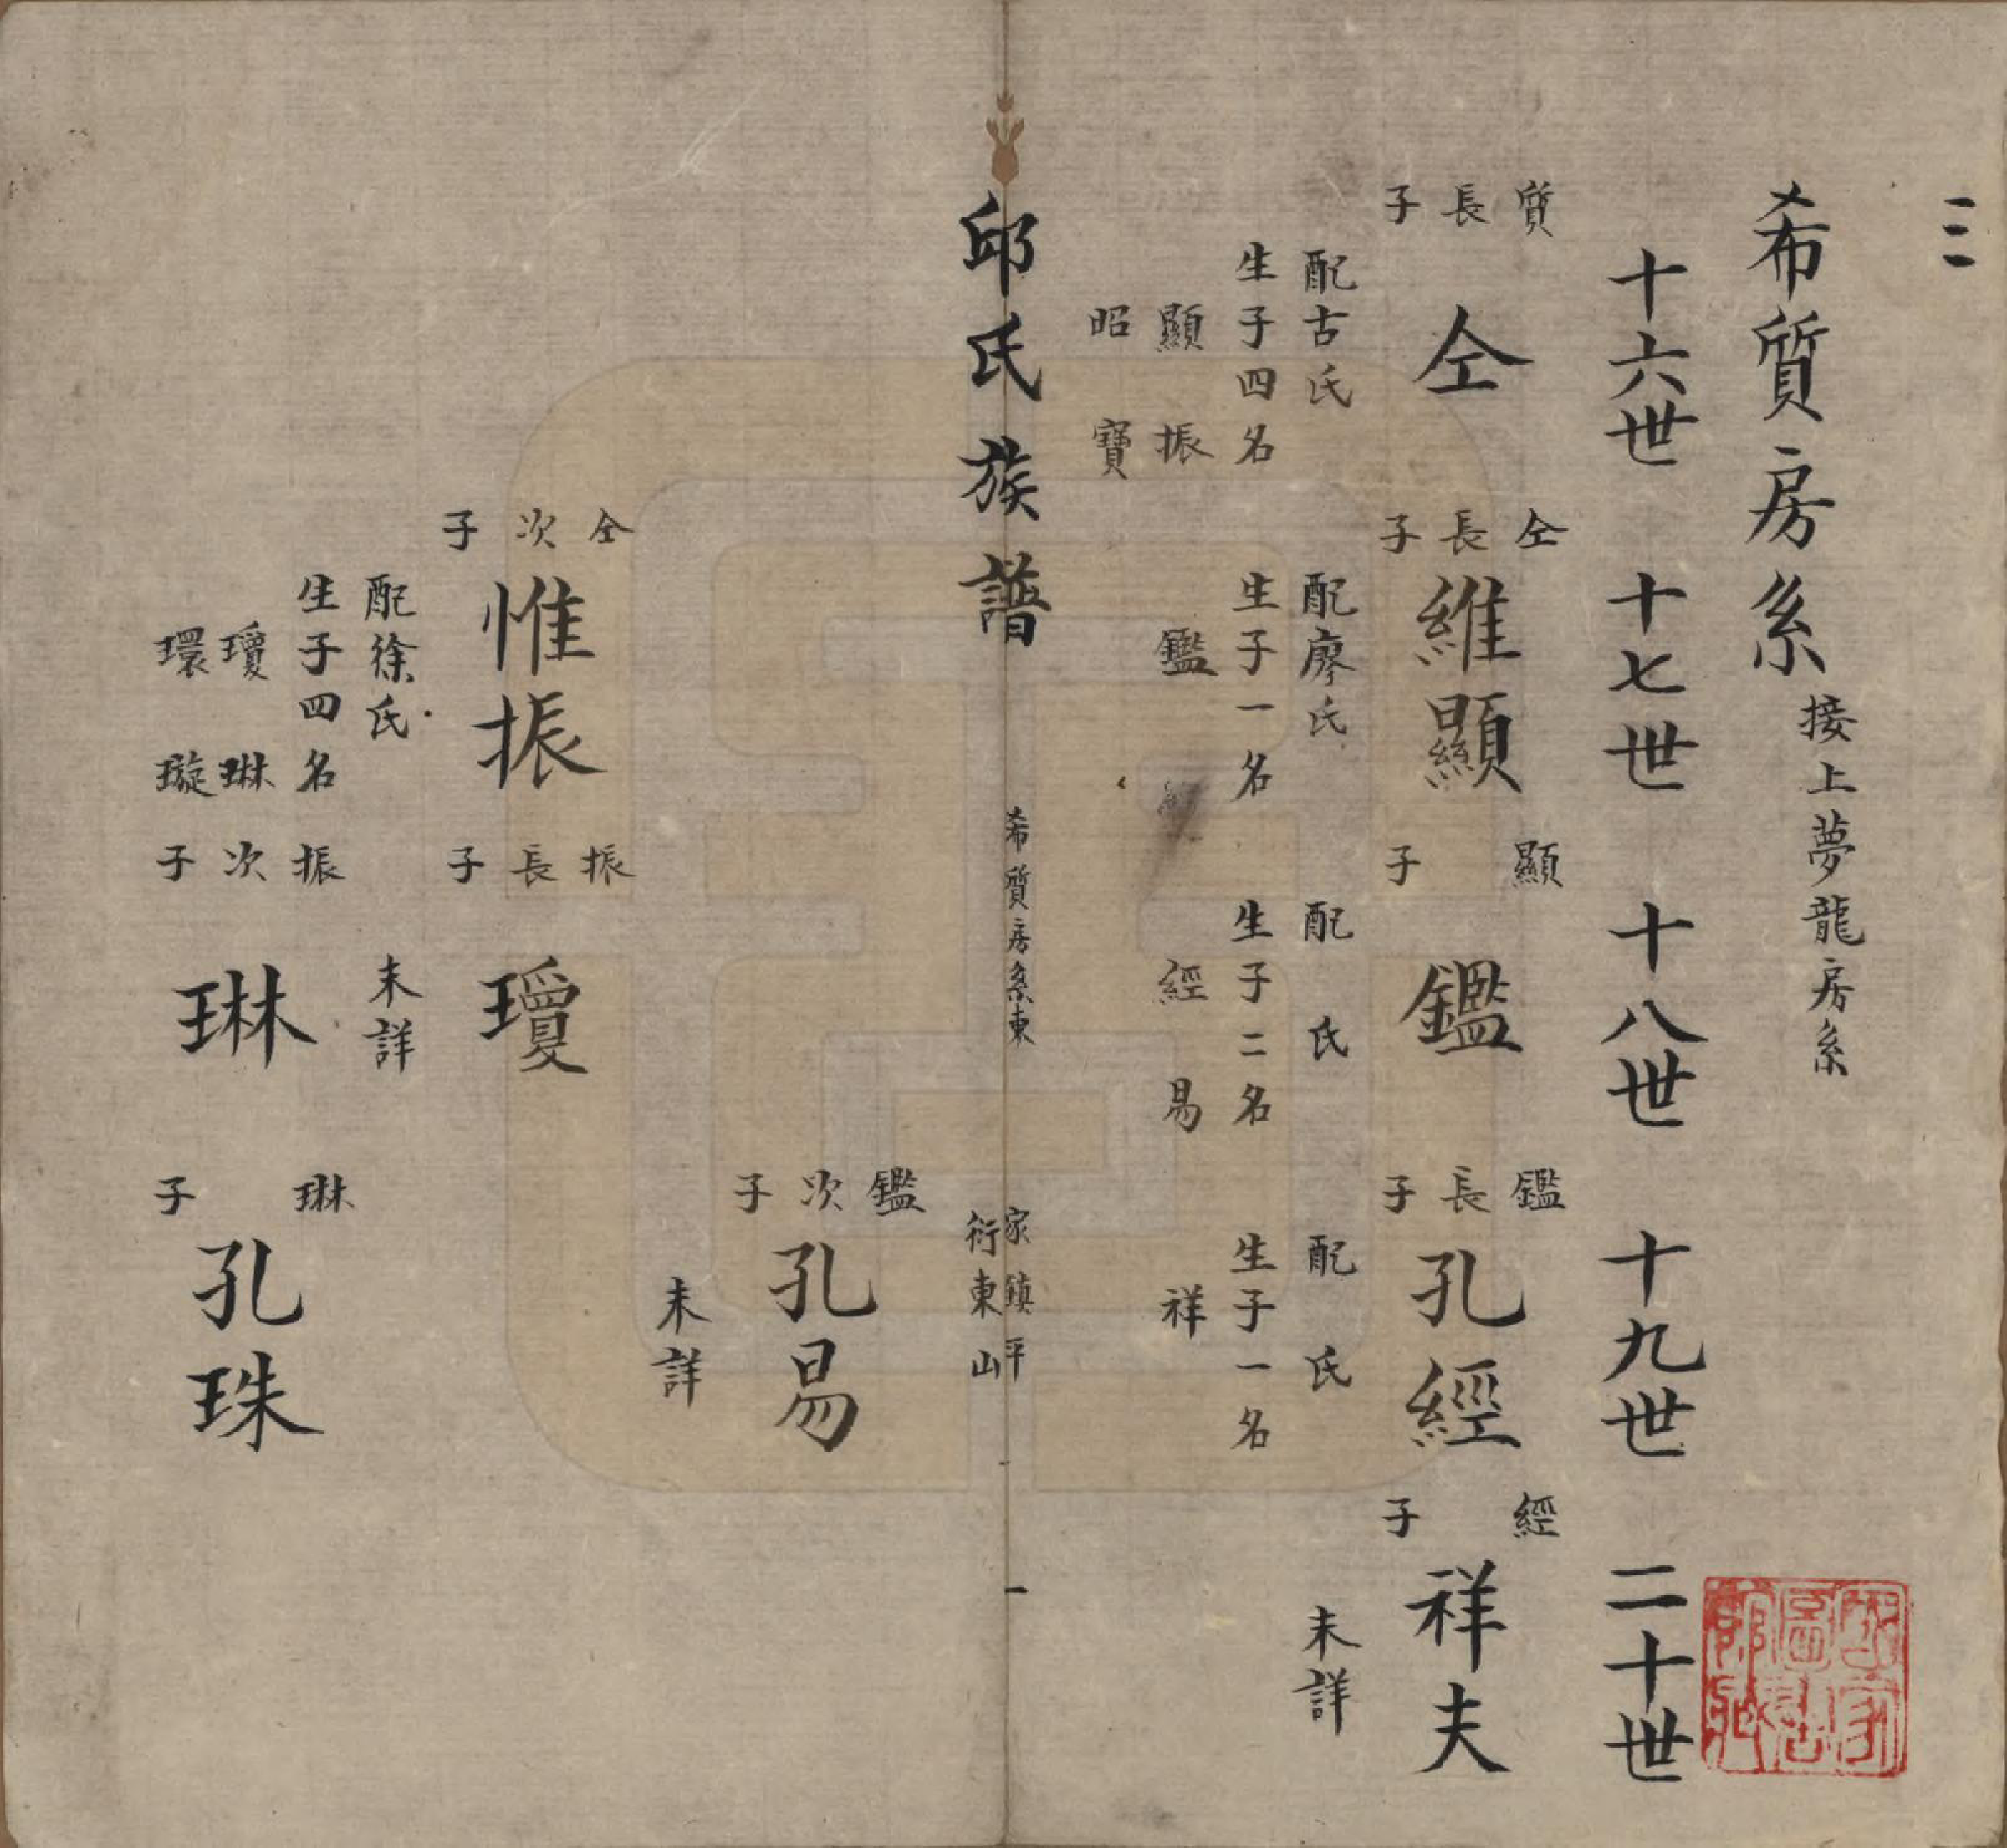 三
希質房系
接上夢龍房系
十六世
十七世
十八世
十九世
二十世
質長子
仝
配古氏
生子四名
顯 振
昭 寶
仝長子
維顯
配廖氏
生子一名
鑑
顯子
鑑
配 氏
生子二名
經 易
鑑長子
孔經
配 氏
生子一名
祥
經子
祥夫
未詳
邱氏族譜
希質房系東
家鎮平
衍東山
一
鑑次子
孔易
未詳
仝次子
惟振
配徐氏
生子四名
瓊 琳
環 璇
振長子
瓊
未詳
振次子
琳
琳子
孔珠